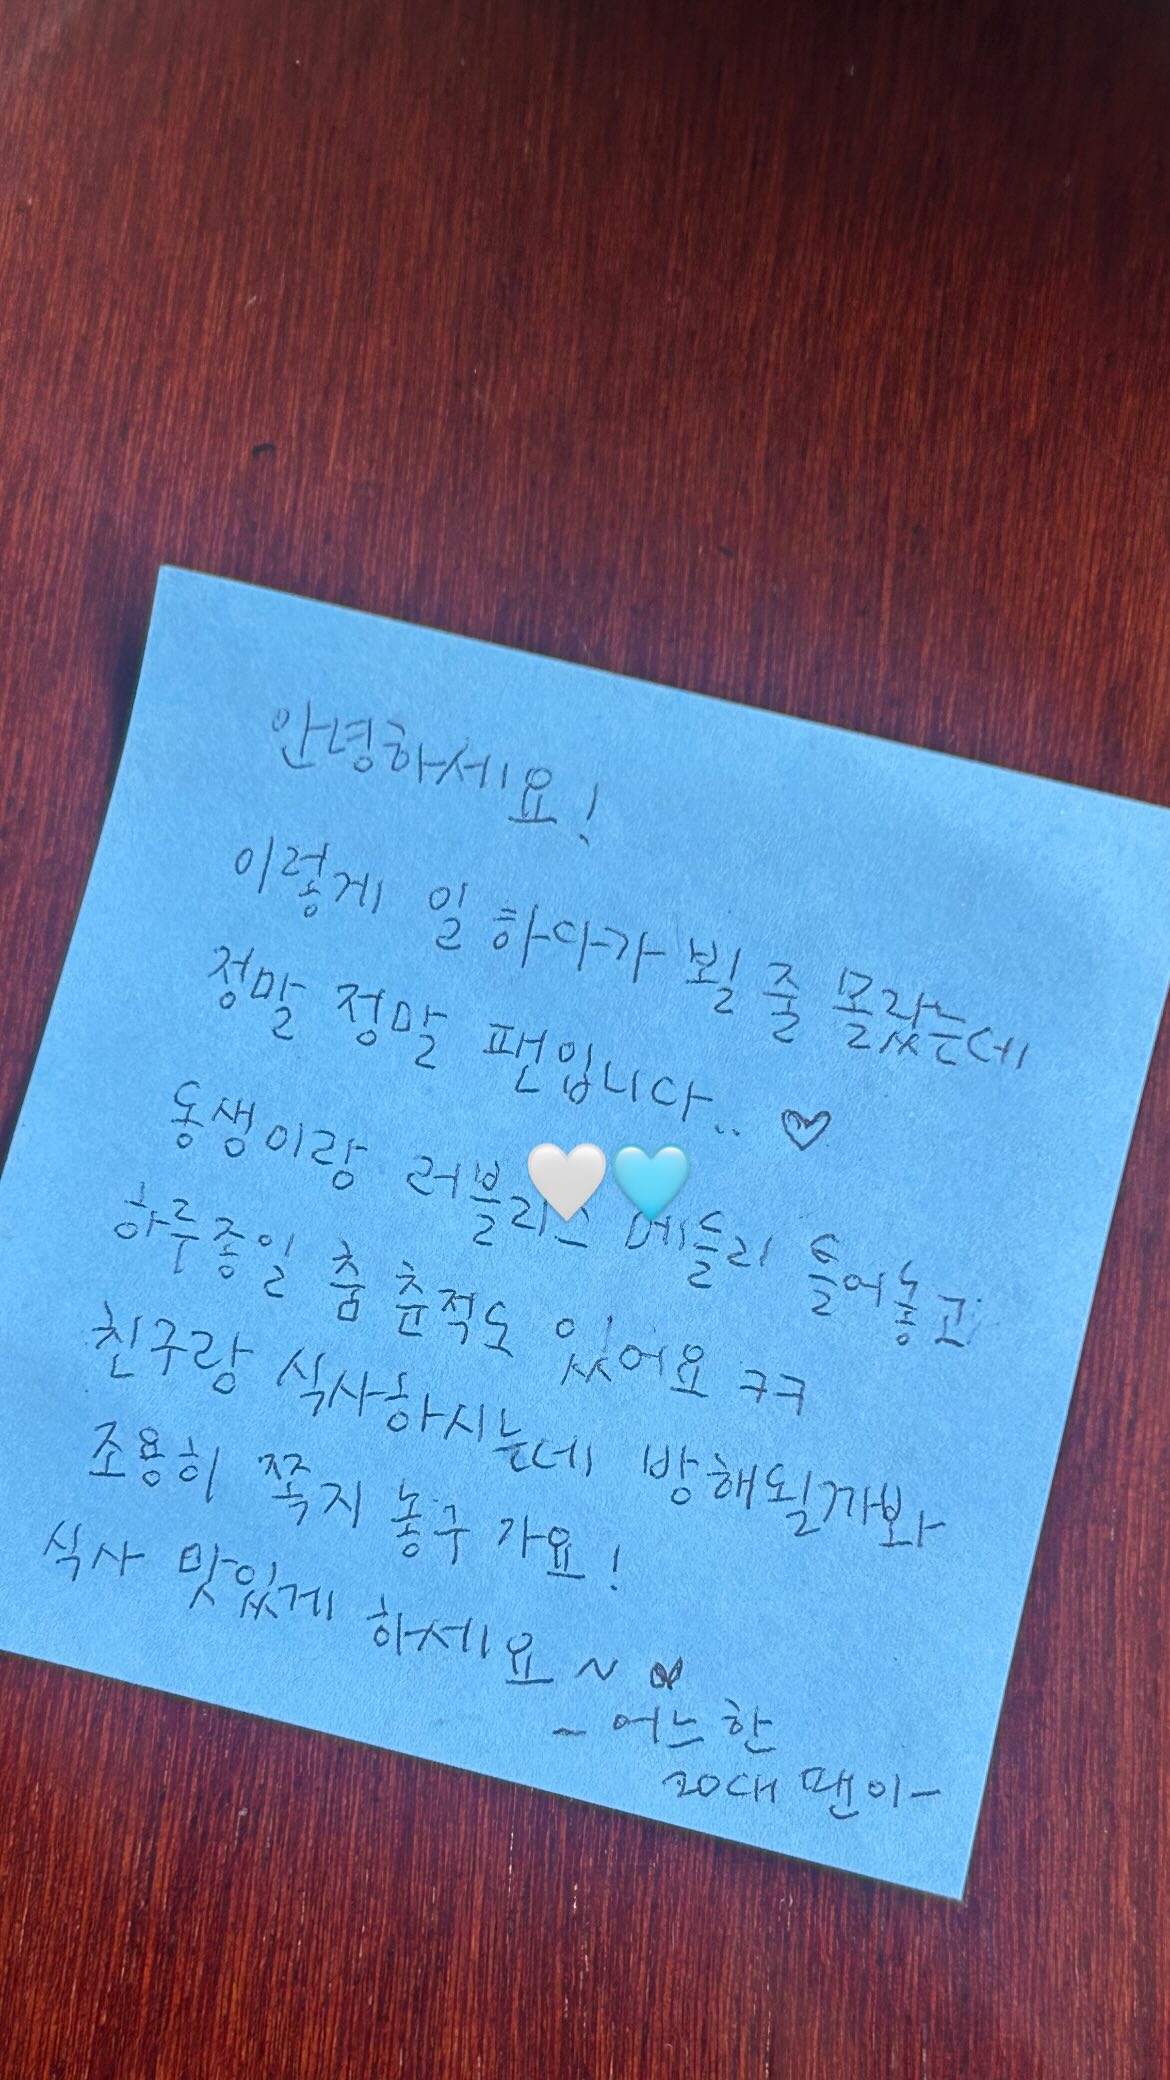 안녕하세요!
이렇게 일 하다가 뵐 줄 몰랐는데
정말 정말 팬입니다.. ♡
동생이랑 러블리즈 메들리 틀어놓고
하루종일 춤 춘적도 있어요 ㅋㅋ
친구랑 식사하시는데 방해될까봐
조용히 쪽지 놓구 가요!
식사 맛있게 하세요 ~ ♥
- 어느 한
20대 팬이-